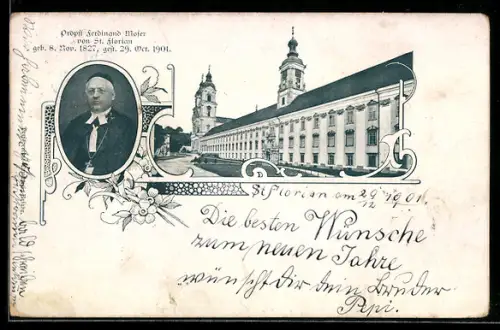 Propst Ferdinand Moser
von St. Florian
geb. 8. Nov. 1827, gest. 29. Oct. 1901.
St Florian am 29/12 1901
Die besten Wünsche
zum neuen Jahre
wünscht Dir dein Bruder
Pepi.